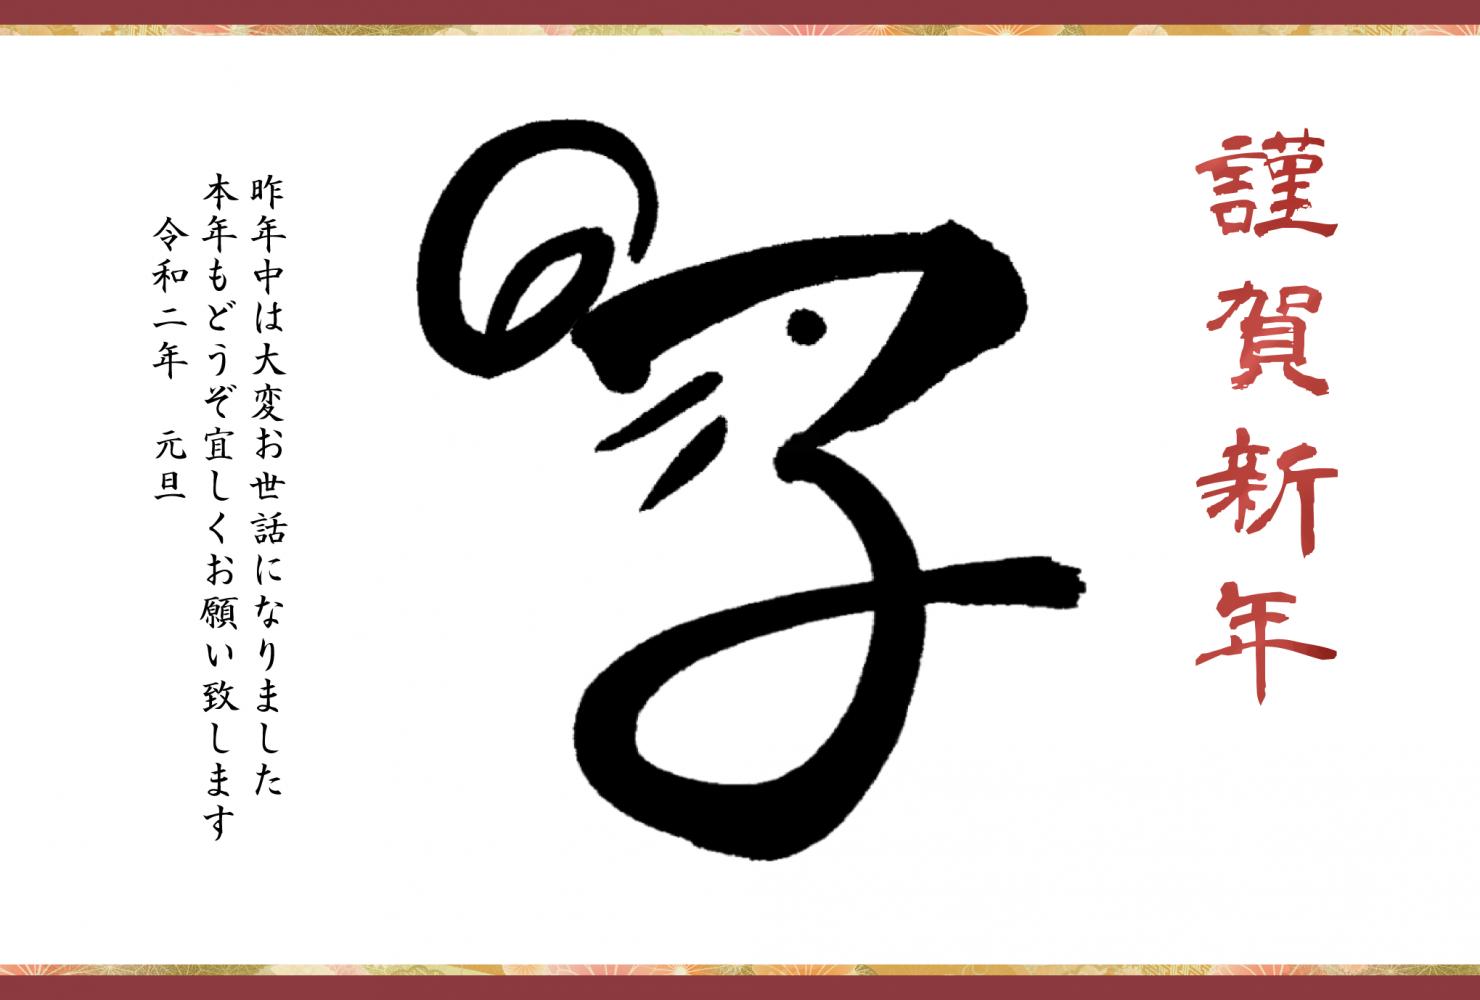 謹賀新年
子
昨年中は大変お世話になりました
本年もどうぞ宜しくお願い致します
令和二年　元旦